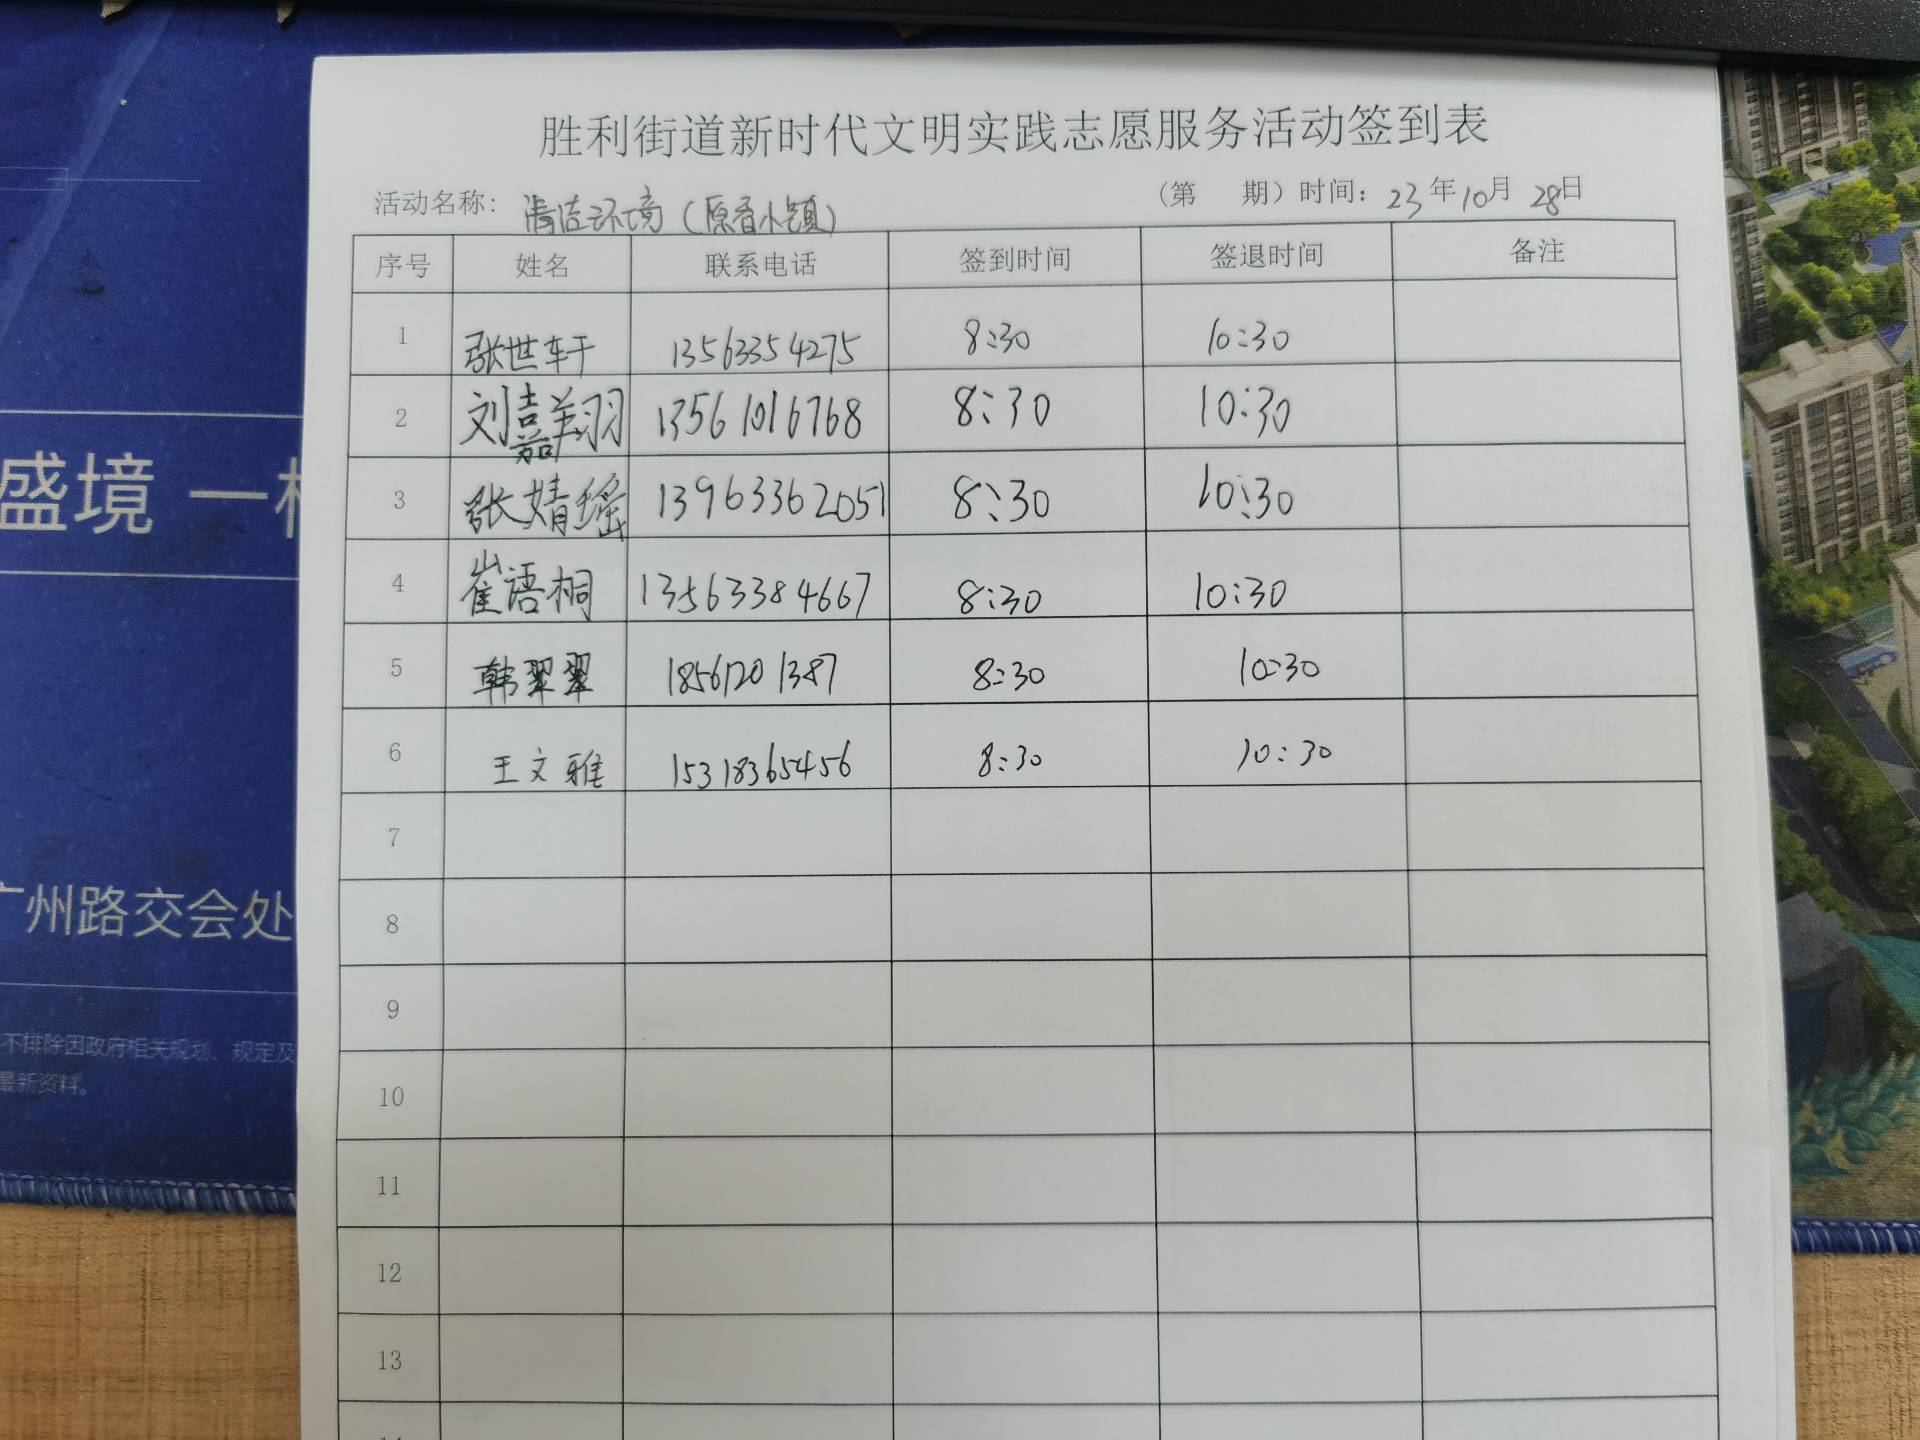 胜利街道新时代文明实践志愿服务活动签到表
活动名称: 清洁环境（原香小镇） （第 期）时间: 23年10月28日
序号 姓名 联系电话 签到时间 签退时间 备注
1 张世轩 13563354275 8:30 10:30
2 刘嘉翔 13561016768 8:30 10:30
3 张婧瑶 13963362051 8:30 10:30
4 崔语桐 13563384667 8:30 10:30
5 韩翠翠 18561201387 8:30 10:30
6 王文雅 15318365456 8:30 10:30
7
8
9
10
11
12
13
盛境 一
广州路交会处
不排除因政府相关规划、规定及
最新资料。